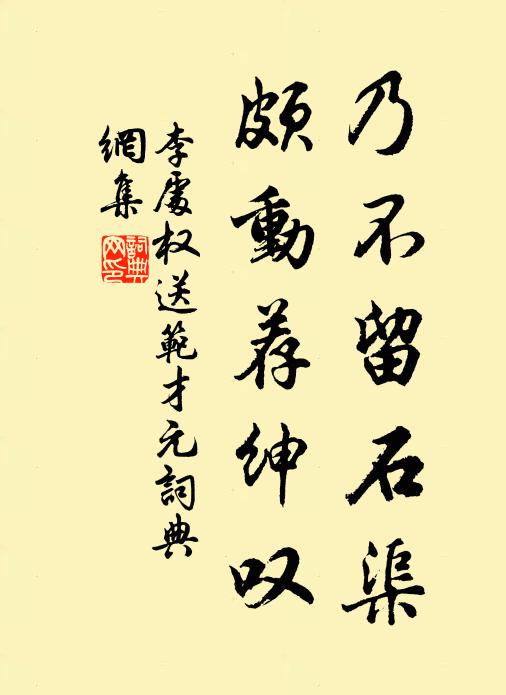 乃不留石渠
颇動荐绅叹
李處权送範才元詞典
網集
詞典
网印